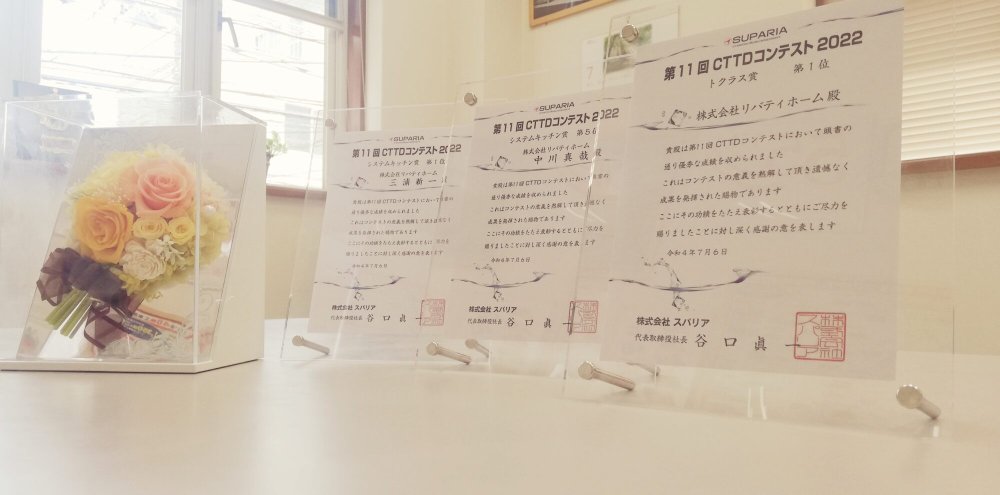 SUPARIA
第11回 CTTDコンテスト 2022
システムキッチン賞 第1位
株式会社リバティホーム
三浦新一
貴殿は第11回CTTDコンテストにおいて頭書の
通り優秀な成績を収められました
これはコンテストの意義を熟解して頂き遺憾なく
成果を発揮された賜物であります
ここにその功績をたたえ表彰するとともに ご尽力を
賜りましたことに対し深く感謝の意を表します
令和4年7月6日
株式会社 スパリア
代表取締役社長 谷口眞一
SUPARIA
第11回 CTTDコンテスト 2022
システムキッチン賞 第5位
株式会社リバティホーム
中川真哉 殿
貴殿は第11回CTTDコンテストにおいて頭書の
通り優秀な成績を収められました
これはコンテストの意義を熟解して頂き遺憾なく
成果を発揮された賜物であります
ここにその功績をたたえ表彰するとともにご尽力を
賜りましたことに対し深く感謝の意を表します
令和4年7月6日
株式会社 スパリア
代表取締役社長 谷口眞一
SUPARIA
第11回 CTTDコンテスト 2022
トクラス賞 第1位
株式会社リバティホーム殿
貴殿は第11回CTTDコンテストにおいて頭書の
通り優秀な成績を収められました
これはコンテストの意義を熟解して頂き遺憾なく
成果を発揮された賜物であります
ここにその功績をたたえ表彰するとともにご尽力を
賜りましたことに対し深く感謝の意を表します
令和4年7月6日
株式会社 スパリア
代表取締役社長 谷口眞一
7